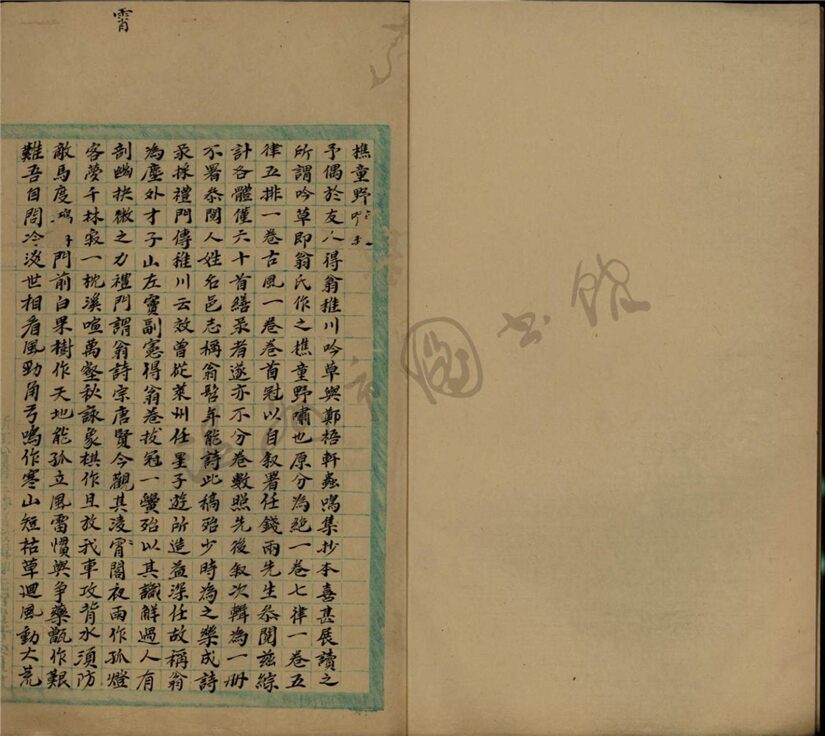 霄
樵童野
予偶於友人得翁推川吟草與鄭梧軒蟲鳴集抄本喜甚展讀之
所謂吟草即翁氏作之樵童野嘯也原分為絕一卷七律一卷五
律五排一卷古風一卷卷首冠以自叙署任錢雨先生恭閱茲綜
計各體僅六十首繕录者遂亦不分卷數照先後叙次輯為一册
不署恭閱人姓名邑志稱翁髫年能詩此稿殆少時為之樂成詩
录採禮門傳稚川云效曾從萊州任星子遊所造益深任故稱翁
為塵外才子山左竇副憲得翁卷拔冠一黌殆以其識解過人有
剖幽抉微之力禮門謂翁詩宗唐賢今觀其凌霄閣夜雨作孤燈
客夢千林寂一枕溪喧萬壑秋詠象棋作且放我車攻背水須防
敵馬度 門前白果樹作天地能孤立風雷慣與爭藥甑作艱
難吾自問冷淡世相看風勁角弓鳴作寒山短枯草迴風動大荒
圖書館